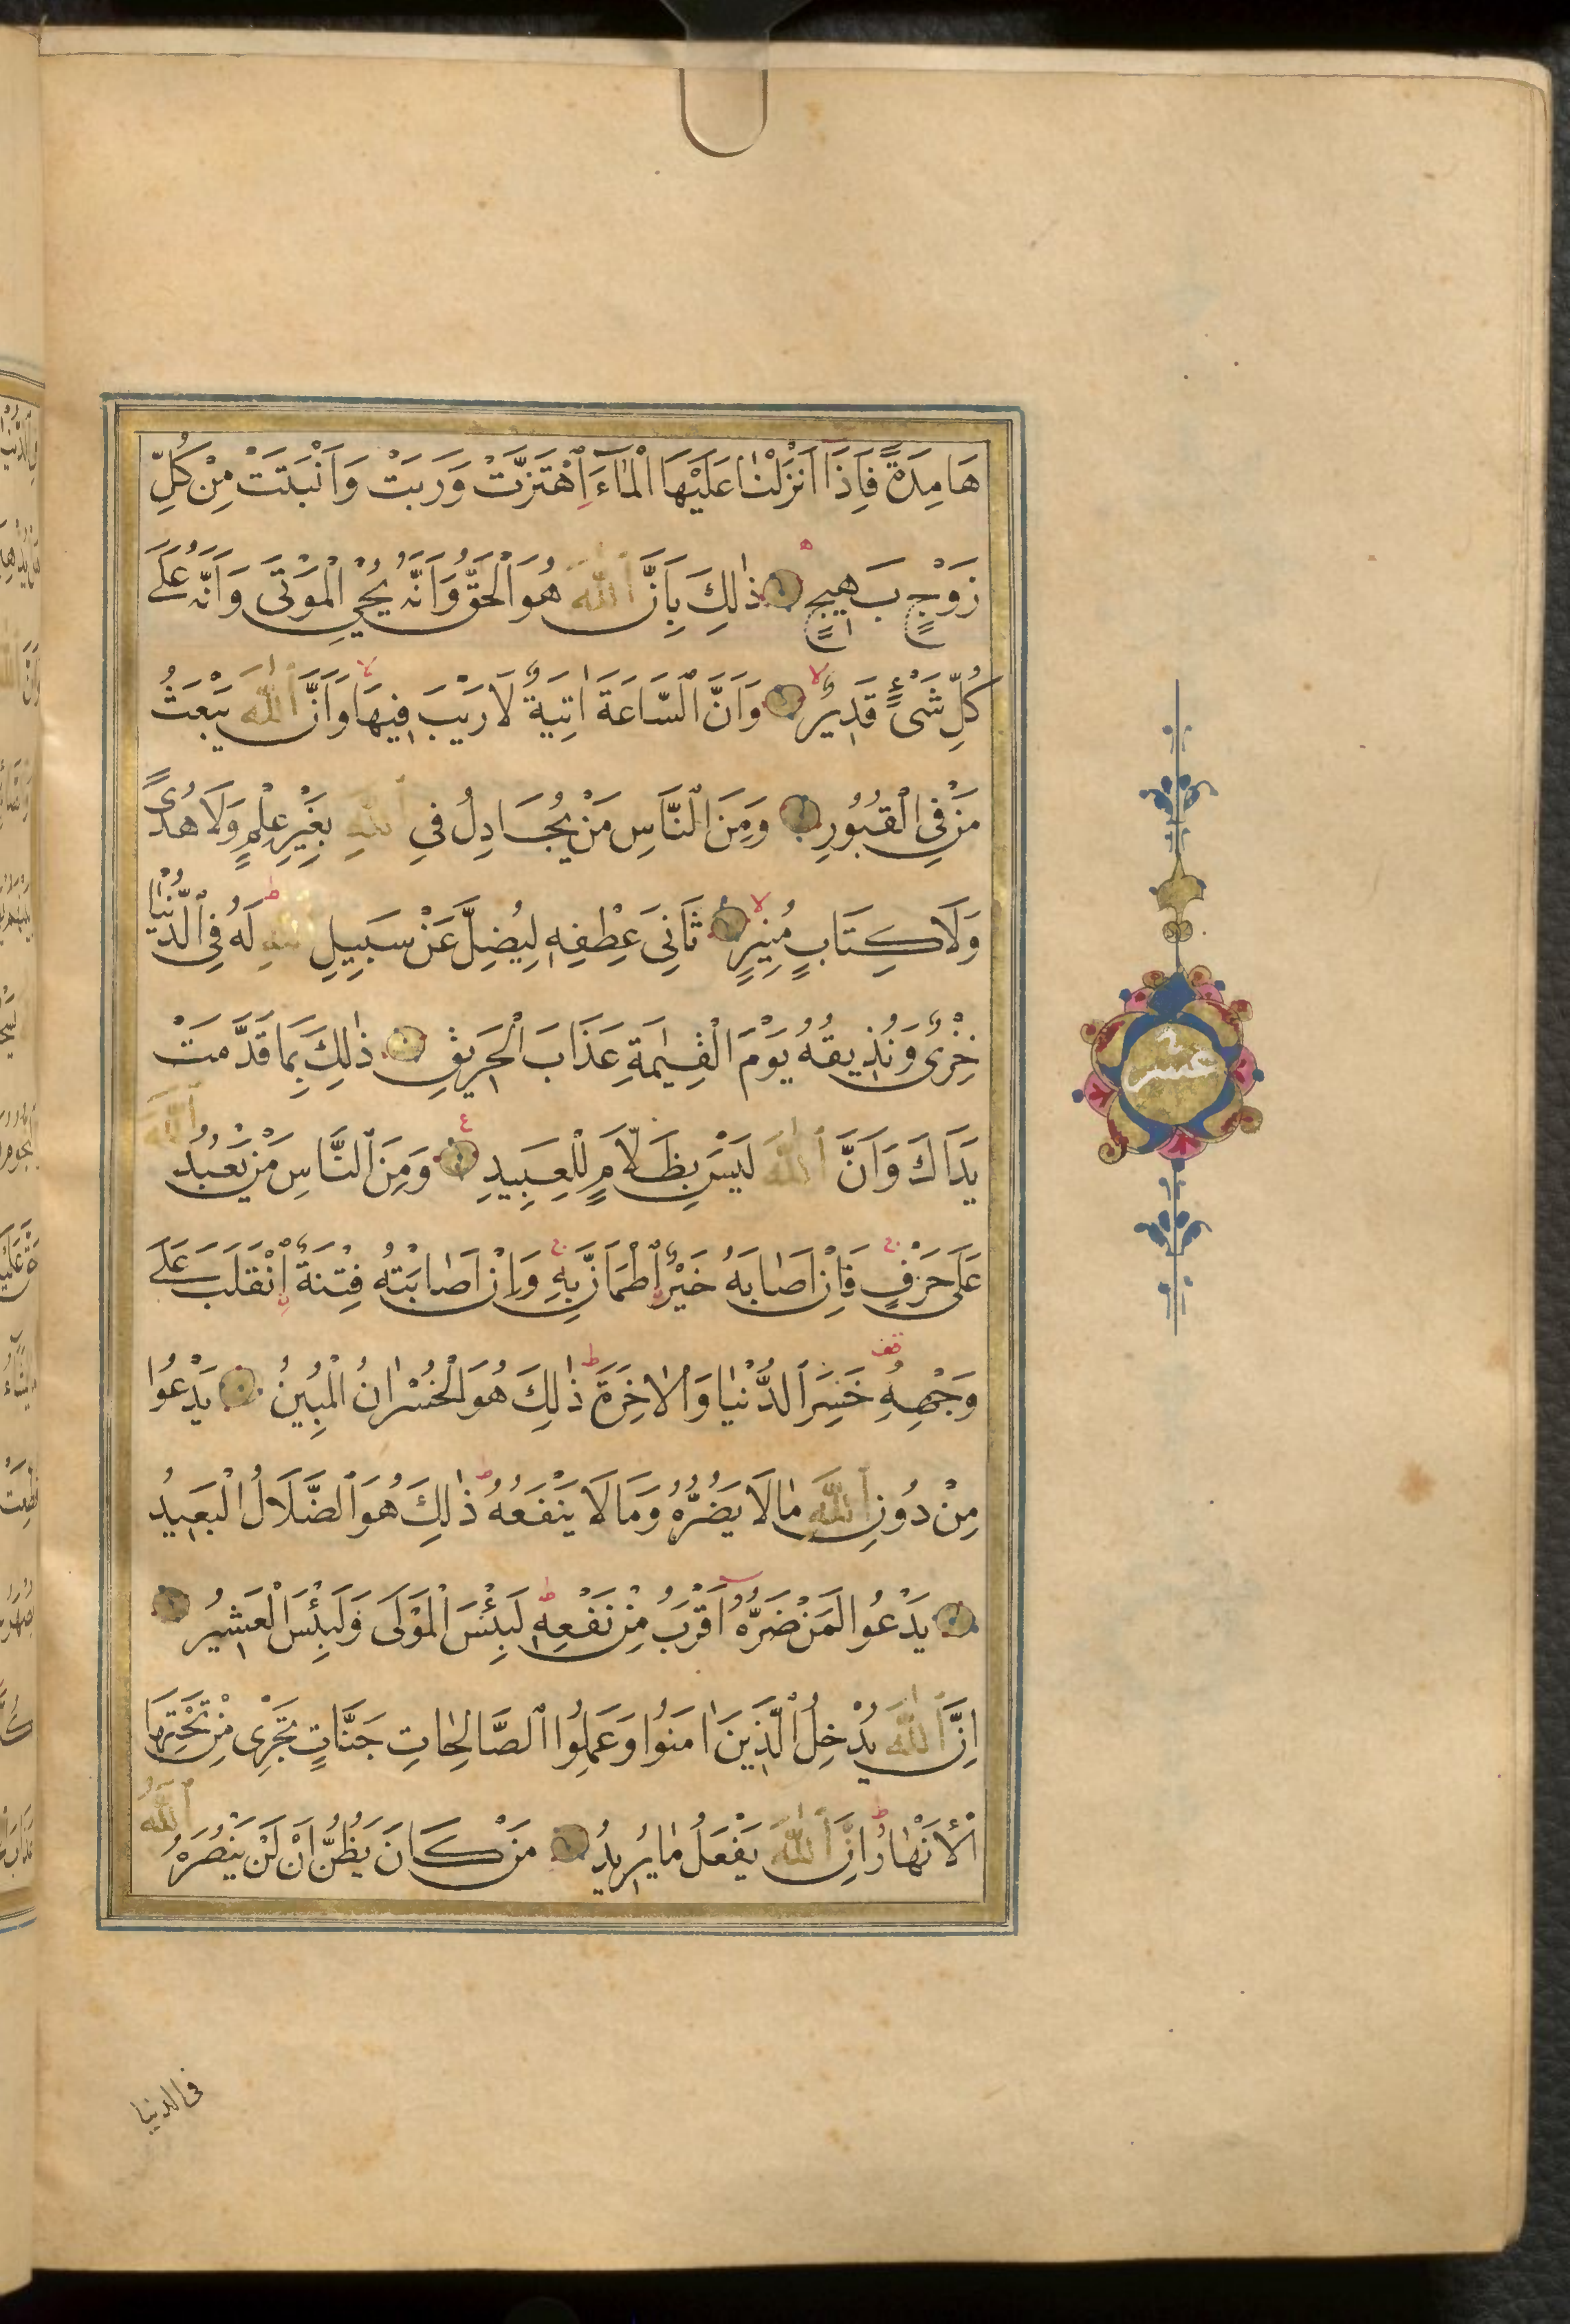 هَامِدَةً فَاِذَا اَنْزَلْنَا عَلَيْهَا الْمَاءَ اهْتَزَّتْ وَرَبَتْ وَاَنْبَتَتْ مِنْ كُلِّ
زَوْجٍ بَهِيجٍ ذٰلِكَ بِاَنَّ اللّٰهَ هُوَ الْحَقُّ وَاَنَّهُ يُحْيِ الْمَوْتٰى وَاَنَّهُ عَلٰى
كُلِّ شَىْءٍ قَدِيرٌ وَاَنَّ السَّاعَةَ اٰتِيَةٌ لَا رَيْبَ فِيهَا وَاَنَّ اللّٰهَ يَبْعَثُ
مَنْ فِى الْقُبُورِ وَمِنَ النَّاسِ مَنْ يُجَادِلُ فِى اللّٰهِ بِغَيْرِ عِلْمٍ وَلَا هُدًى
وَلَا كِتَابٍ مُنِيرٍ ثَانِىَ عِطْفِهِ لِيُضِلَّ عَنْ سَبِيلِ اللّٰهِ لَهُ فِى الدُّنْيَا
خِزْىٌ وَنُذِيقُهُ يَوْمَ الْقِيٰمَةِ عَذَابَ الْحَرِيقِ ذٰلِكَ بِمَا قَدَّمَتْ
يَدَاكَ وَاَنَّ اللّٰهَ لَيْسَ بِظَلَّامٍ لِلْعَبِيدِ وَمِنَ النَّاسِ مَنْ يَعْبُدُ اللّٰهَ
عَلٰى حَرْفٍ فَاِنْ اَصَابَهُ خَيْرٌ اطْمَاَنَّ بِهِ وَاِنْ اَصَابَتْهُ فِتْنَةٌ انْقَلَبَ عَلٰى
وَجْهِهِ خَسِرَ الدُّنْيَا وَالْاٰخِرَةَ ذٰلِكَ هُوَ الْخُسْرَانُ الْمُبِينُ يَدْعُوا
مِنْ دُونِ اللّٰهِ مَا لَا يَضُرُّهُ وَمَا لَا يَنْفَعُهُ ذٰلِكَ هُوَ الضَّلَالُ الْبَعِيدُ
يَدْعُوا لَمَنْ ضَرُّهُ اَقْرَبُ مِنْ نَفْعِهِ لَبِئْسَ الْمَوْلٰى وَلَبِئْسَ الْعَشِيرُ
اِنَّ اللّٰهَ يُدْخِلُ الَّذِينَ اٰمَنُوا وَعَمِلُوا الصَّالِحَاتِ جَنَّاتٍ تَجْرِى مِنْ تَحْتِهَا
الْاَنْهَارُ اِنَّ اللّٰهَ يَفْعَلُ مَا يُرِيدُ مَنْ كَانَ يَظُنُّ اَنْ لَنْ يَنْصُرَهُ اللّٰهُ
عشر
فى الدنيا